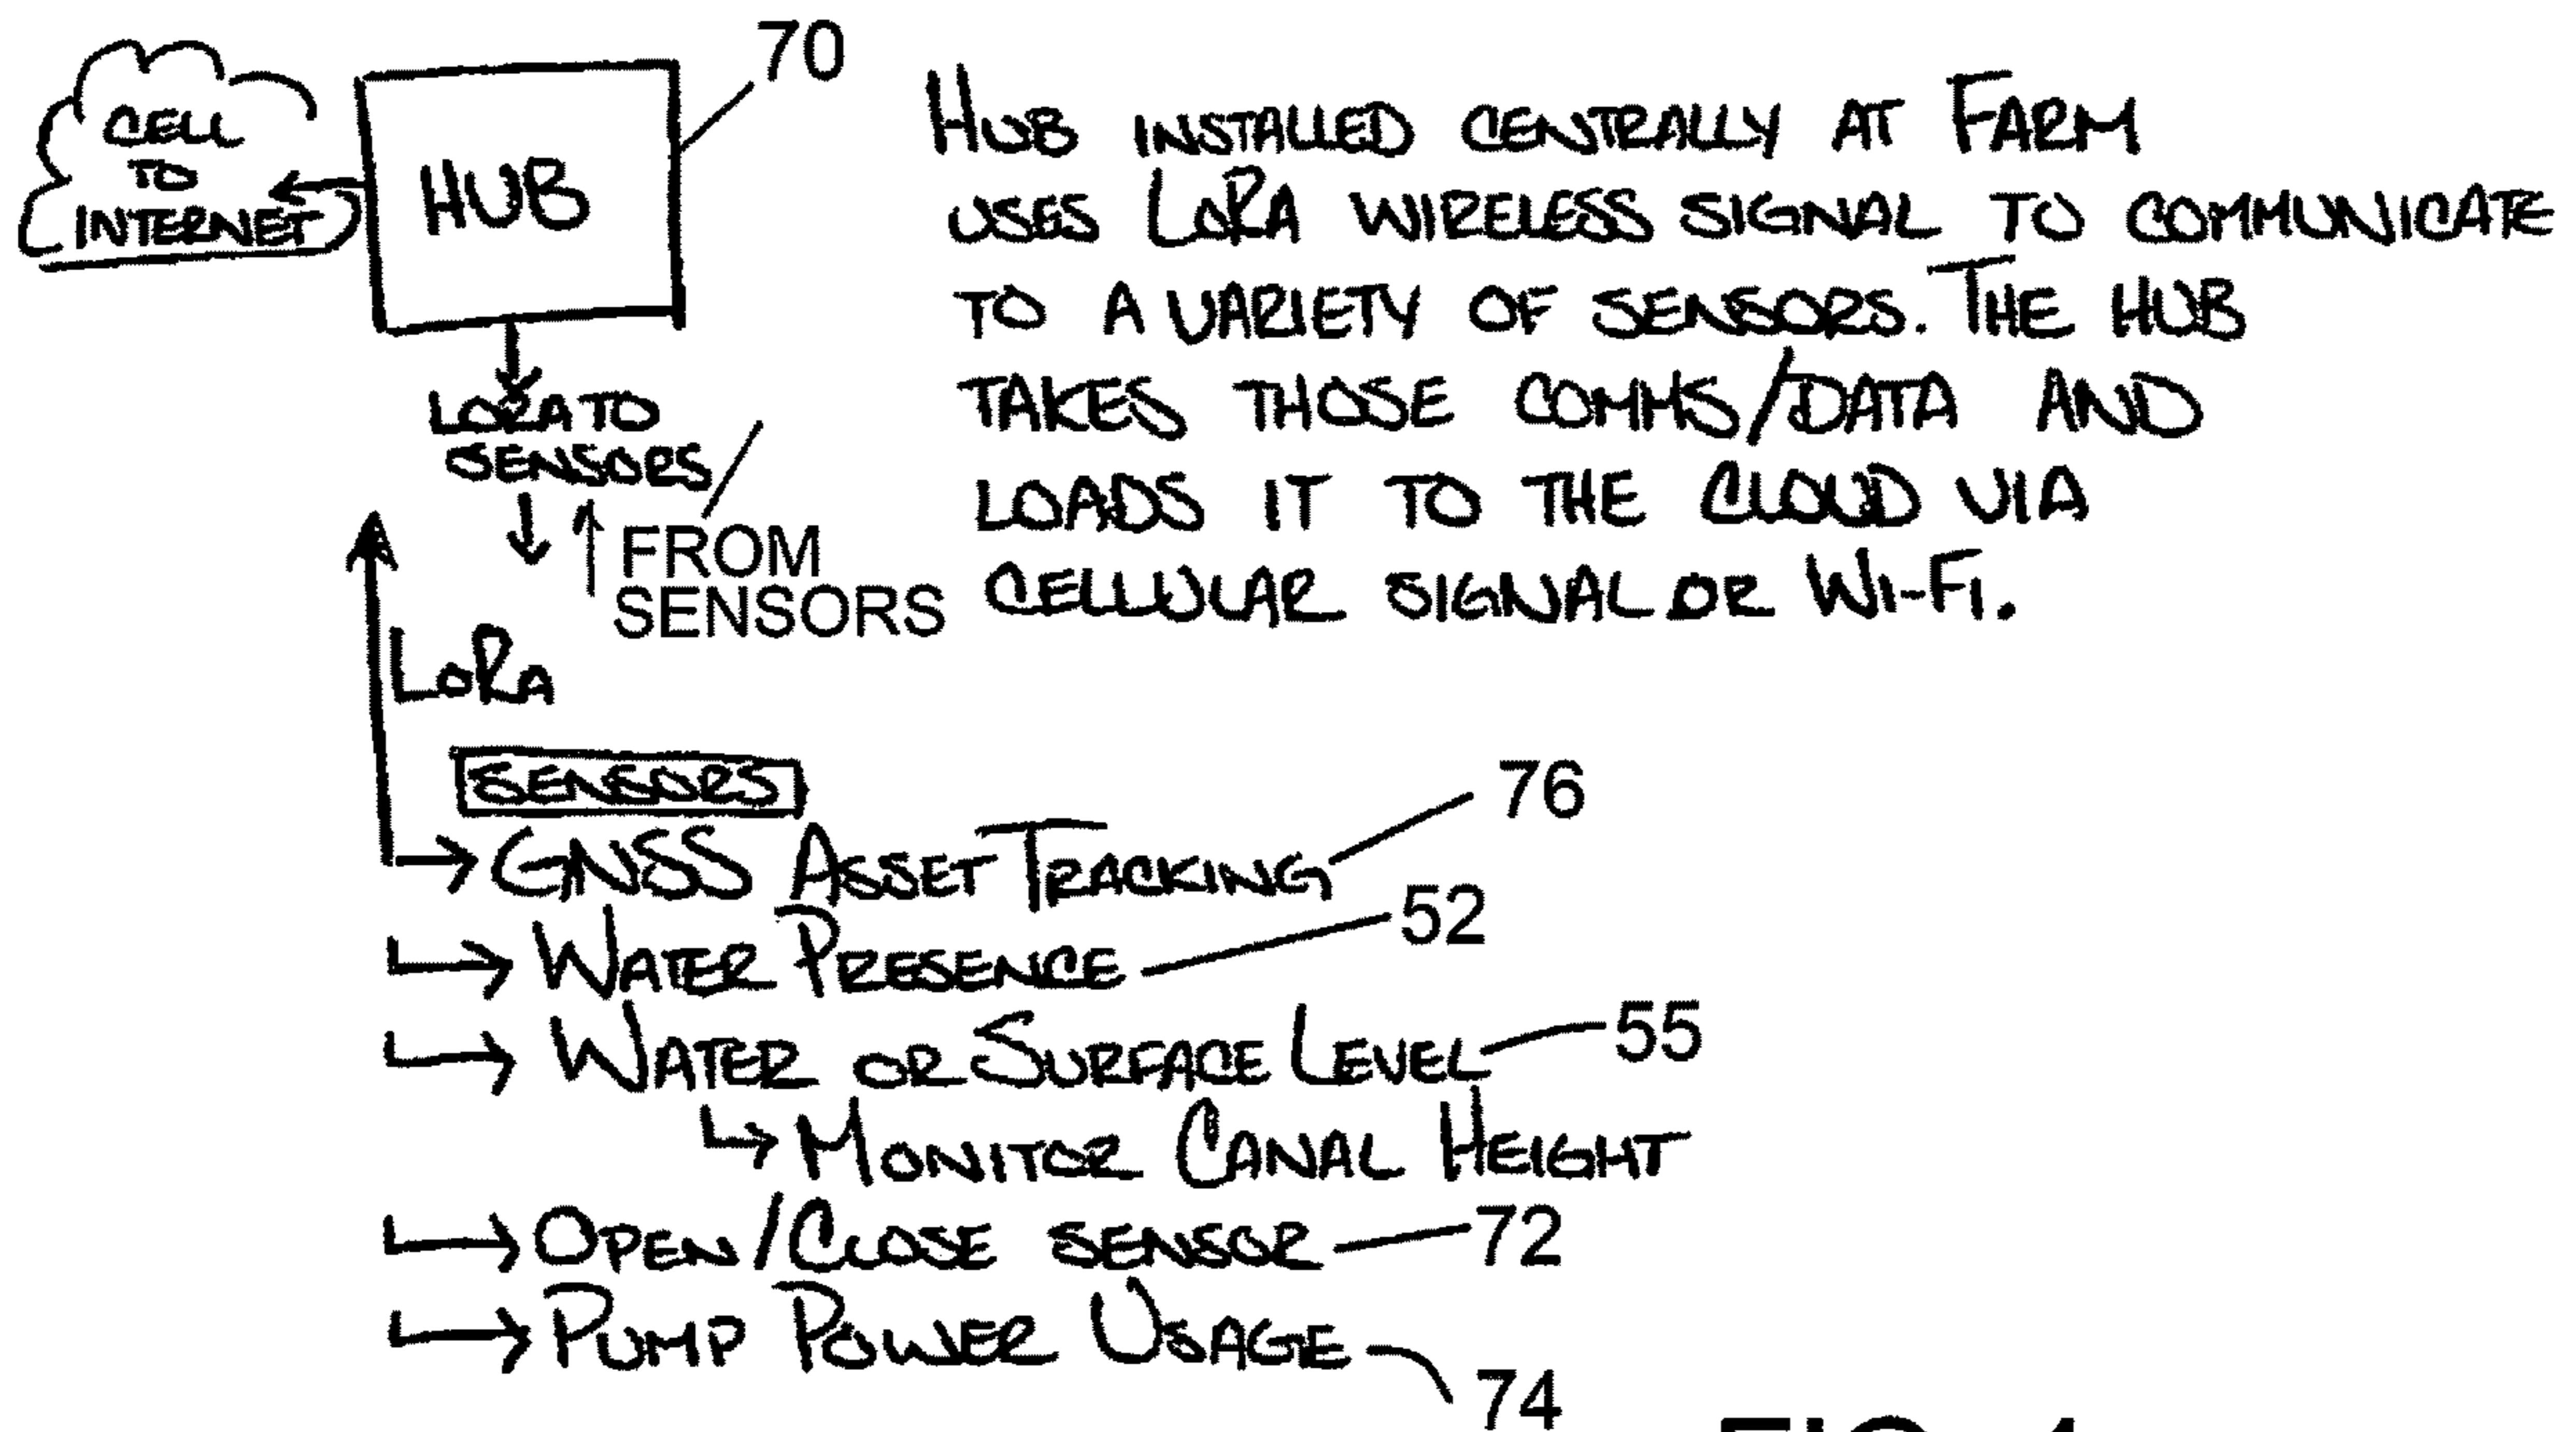 70
CELL
TO
INTERNET
HUB
HUB INSTALLED CENTRALLY AT FARM
USES LORA WIRELESS SIGNAL TO COMMUNICATE
TO A VARIETY OF SENSORS. THE HUB
TAKES THOSE COMMS/DATA AND
LOADS IT TO THE CLOUD VIA
CELLULAR SIGNAL OR WI-FI.
LORA TO
SENSORS
FROM
SENSORS
LoRa
SENSORS
GNSS ASSET TRACKING 76
WATER PRESENCE 52
WATER OR SURFACE LEVEL 55
MONITOR CANAL HEIGHT
OPEN/CLOSE SENSOR 72
PUMP POWER USAGE
74